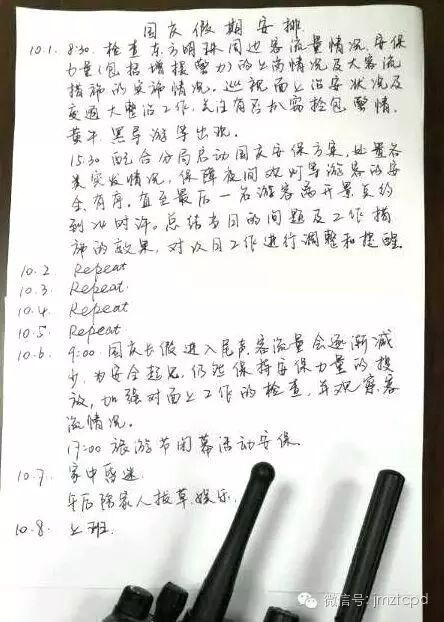 国庆假期安排
10.1. 8:30. 检查东方明珠周边客流量情况, 安保
力量(包括增援警力)的上岗情况及大客流
措施的实施情况. 巡视面上治安状况及
交通大整治工作. 关注有否扒窃拎包警情.
黄牛黑导游等出现.
15:30 配合分局启动国庆安保方案, 处置各
类突发情况, 保障夜间观灯导游客的安
全有序. 直至最后一名游客离开景点约
到24时许. 总结当日的问题及工作措
施的效果, 对次日工作进行调整和提醒.
10.2 Repeat
10.3. Repeat.
10.4. Repeat
10.5. Repeat
10.6. 9:00. 国庆长假进入尾声, 客流量会逐渐减
少, 为安全起见. 仍然保持安保力量的投
放, 加强对面上工作的检查, 并观察客
流情况.
17:00 旅游节闭幕活动安保.
10.7. 家中昏迷.
午后陪家人拔草娱乐.
10.8. 上班.
微信号: jmztcpd